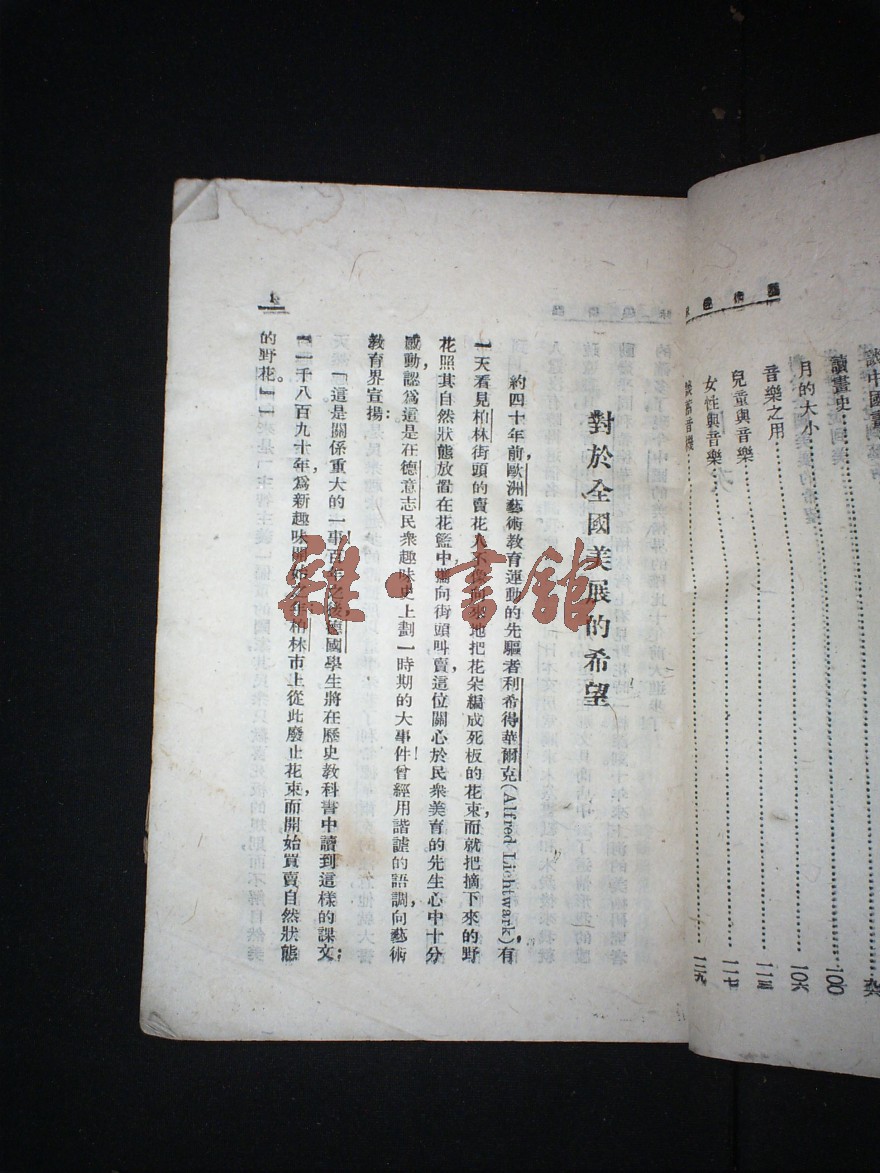 藝術趣味
談中國畫
讀畫史
一〇〇
月的大小
一〇六
音樂之用
一一三
兒童與音樂
一一七
女性與音樂
一二九
對於全國美展的希望
約四十年前,歐洲藝術教育運動的先驅者利希得華爾克(Alfred Lichtwark)有
一天看見柏林街頭的賣花人不像向來地把花朵編成死板的花束,而就把摘下來的野
花照其自然狀態放置在花籃中,攜向街頭叫賣,這位關心於民衆美育的先生心中十分
感動,認爲這是在德意志民衆趣味史上劃一時期的大事件!曾經用諧謔的語調,向藝術
教育界宣揚:
「這是關係重大的一事!百年之後,德國學生將在歷史教科書中讀到這樣的課文:
『一千八百九十年,爲新趣味開始之年,柏林市上從此廢止花束,而開始買賣自然狀態
的野花。』」
雜·書館